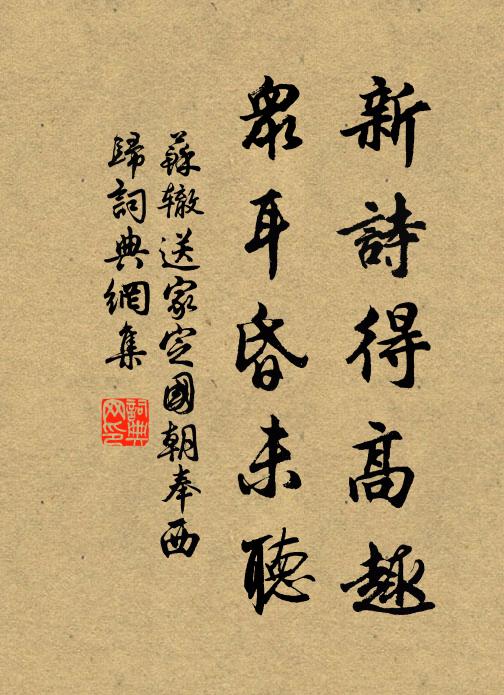 新詩得高趣
眾耳昏未聽
蘇辙送家定國朝奉西
歸詞典網集
詞典
网印